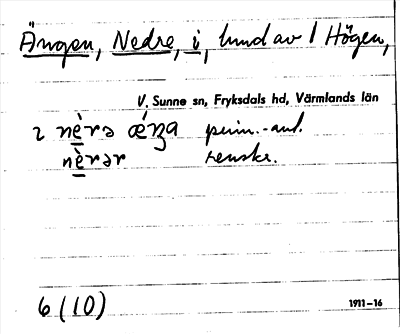 Ängen, Nedre, i, hmd av 1 Högen,
V. Sunne sn, Fryksdals hd, Värmlands län
2 nèrə ǽŋa prim.-ant.
nèrər renskr.
6 (10) 1911–16